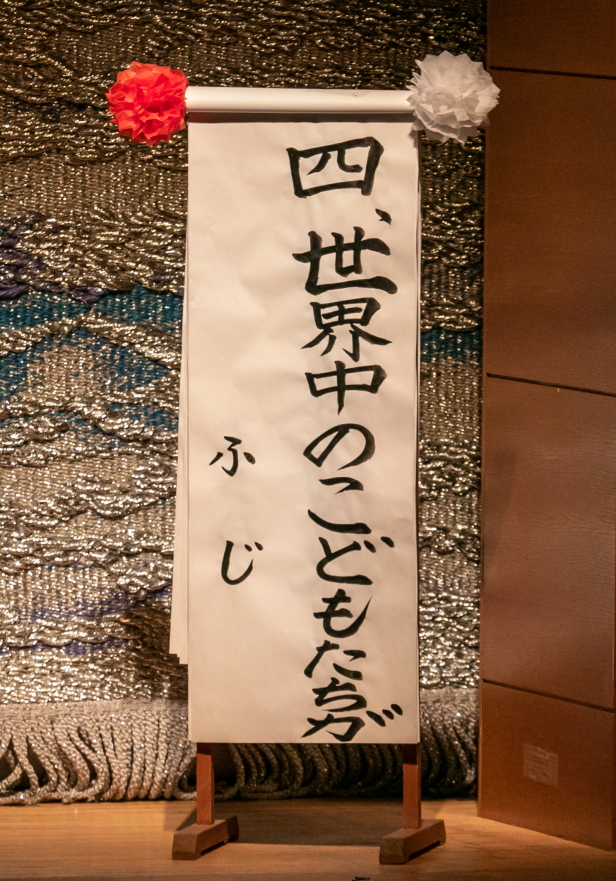 四、世界中のこどもたちが
ふじ